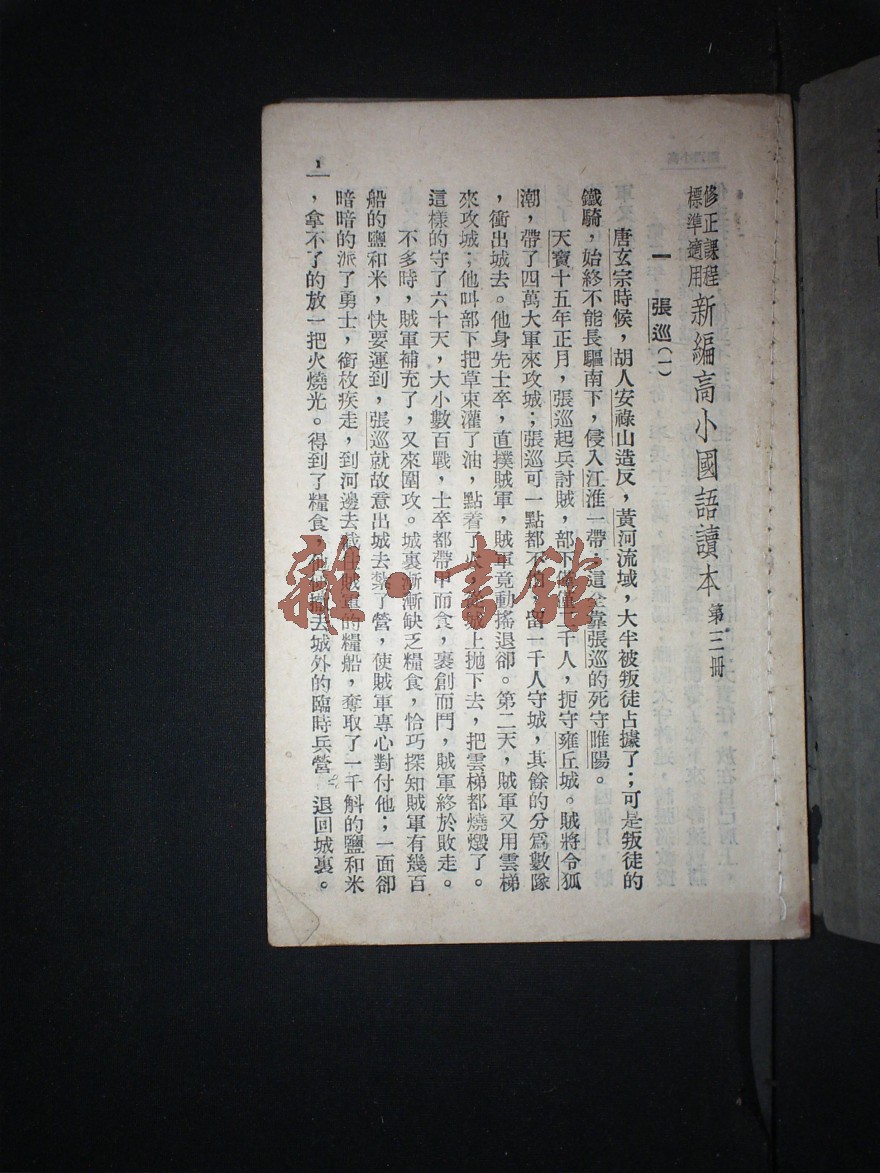 修正課程標準適用 新編高小國語讀本 第三冊
一 張巡(一)
唐玄宗時候，胡人安祿山造反，黃河流域，大半被叛徒占據了；可是叛徒的
鐵騎，始終不能長驅南下，侵入江淮一帶，這全靠張巡的死守睢陽。
天寶十五年正月，張巡起兵討賊，部下僅二千人，扼守雍丘城。賊將令狐
潮，帶了四萬大軍來攻城；張巡可一點都不，留一千人守城，其餘的分爲數隊
，衝出城去。他身先士卒，直撲賊軍，賊軍竟動搖退卻。第二天，賊軍又用雲梯
來攻城；他叫部下把草束灌了油，點着了火，城上拋下去，把雲梯都燒燬了。
這樣的守了六十天，大小數百戰，士卒都帶甲而食，裹創而鬥，賊軍終於敗走。
不多時，賊軍補充了，又來圍攻。城裏漸漸缺乏糧食，恰巧探知賊軍有幾百
船的鹽和米，快要運到，張巡就故意出城去紮了營，使賊軍專心對付他；一面卻
暗暗的派了勇士，銜枚疾走，到河邊去截住賊軍的糧船，奪取了一千斛的鹽和米
，拿不了的放一把火燒光。得到了糧食，他便撤去城外的臨時兵營。退回城裏。
1
雜·書館